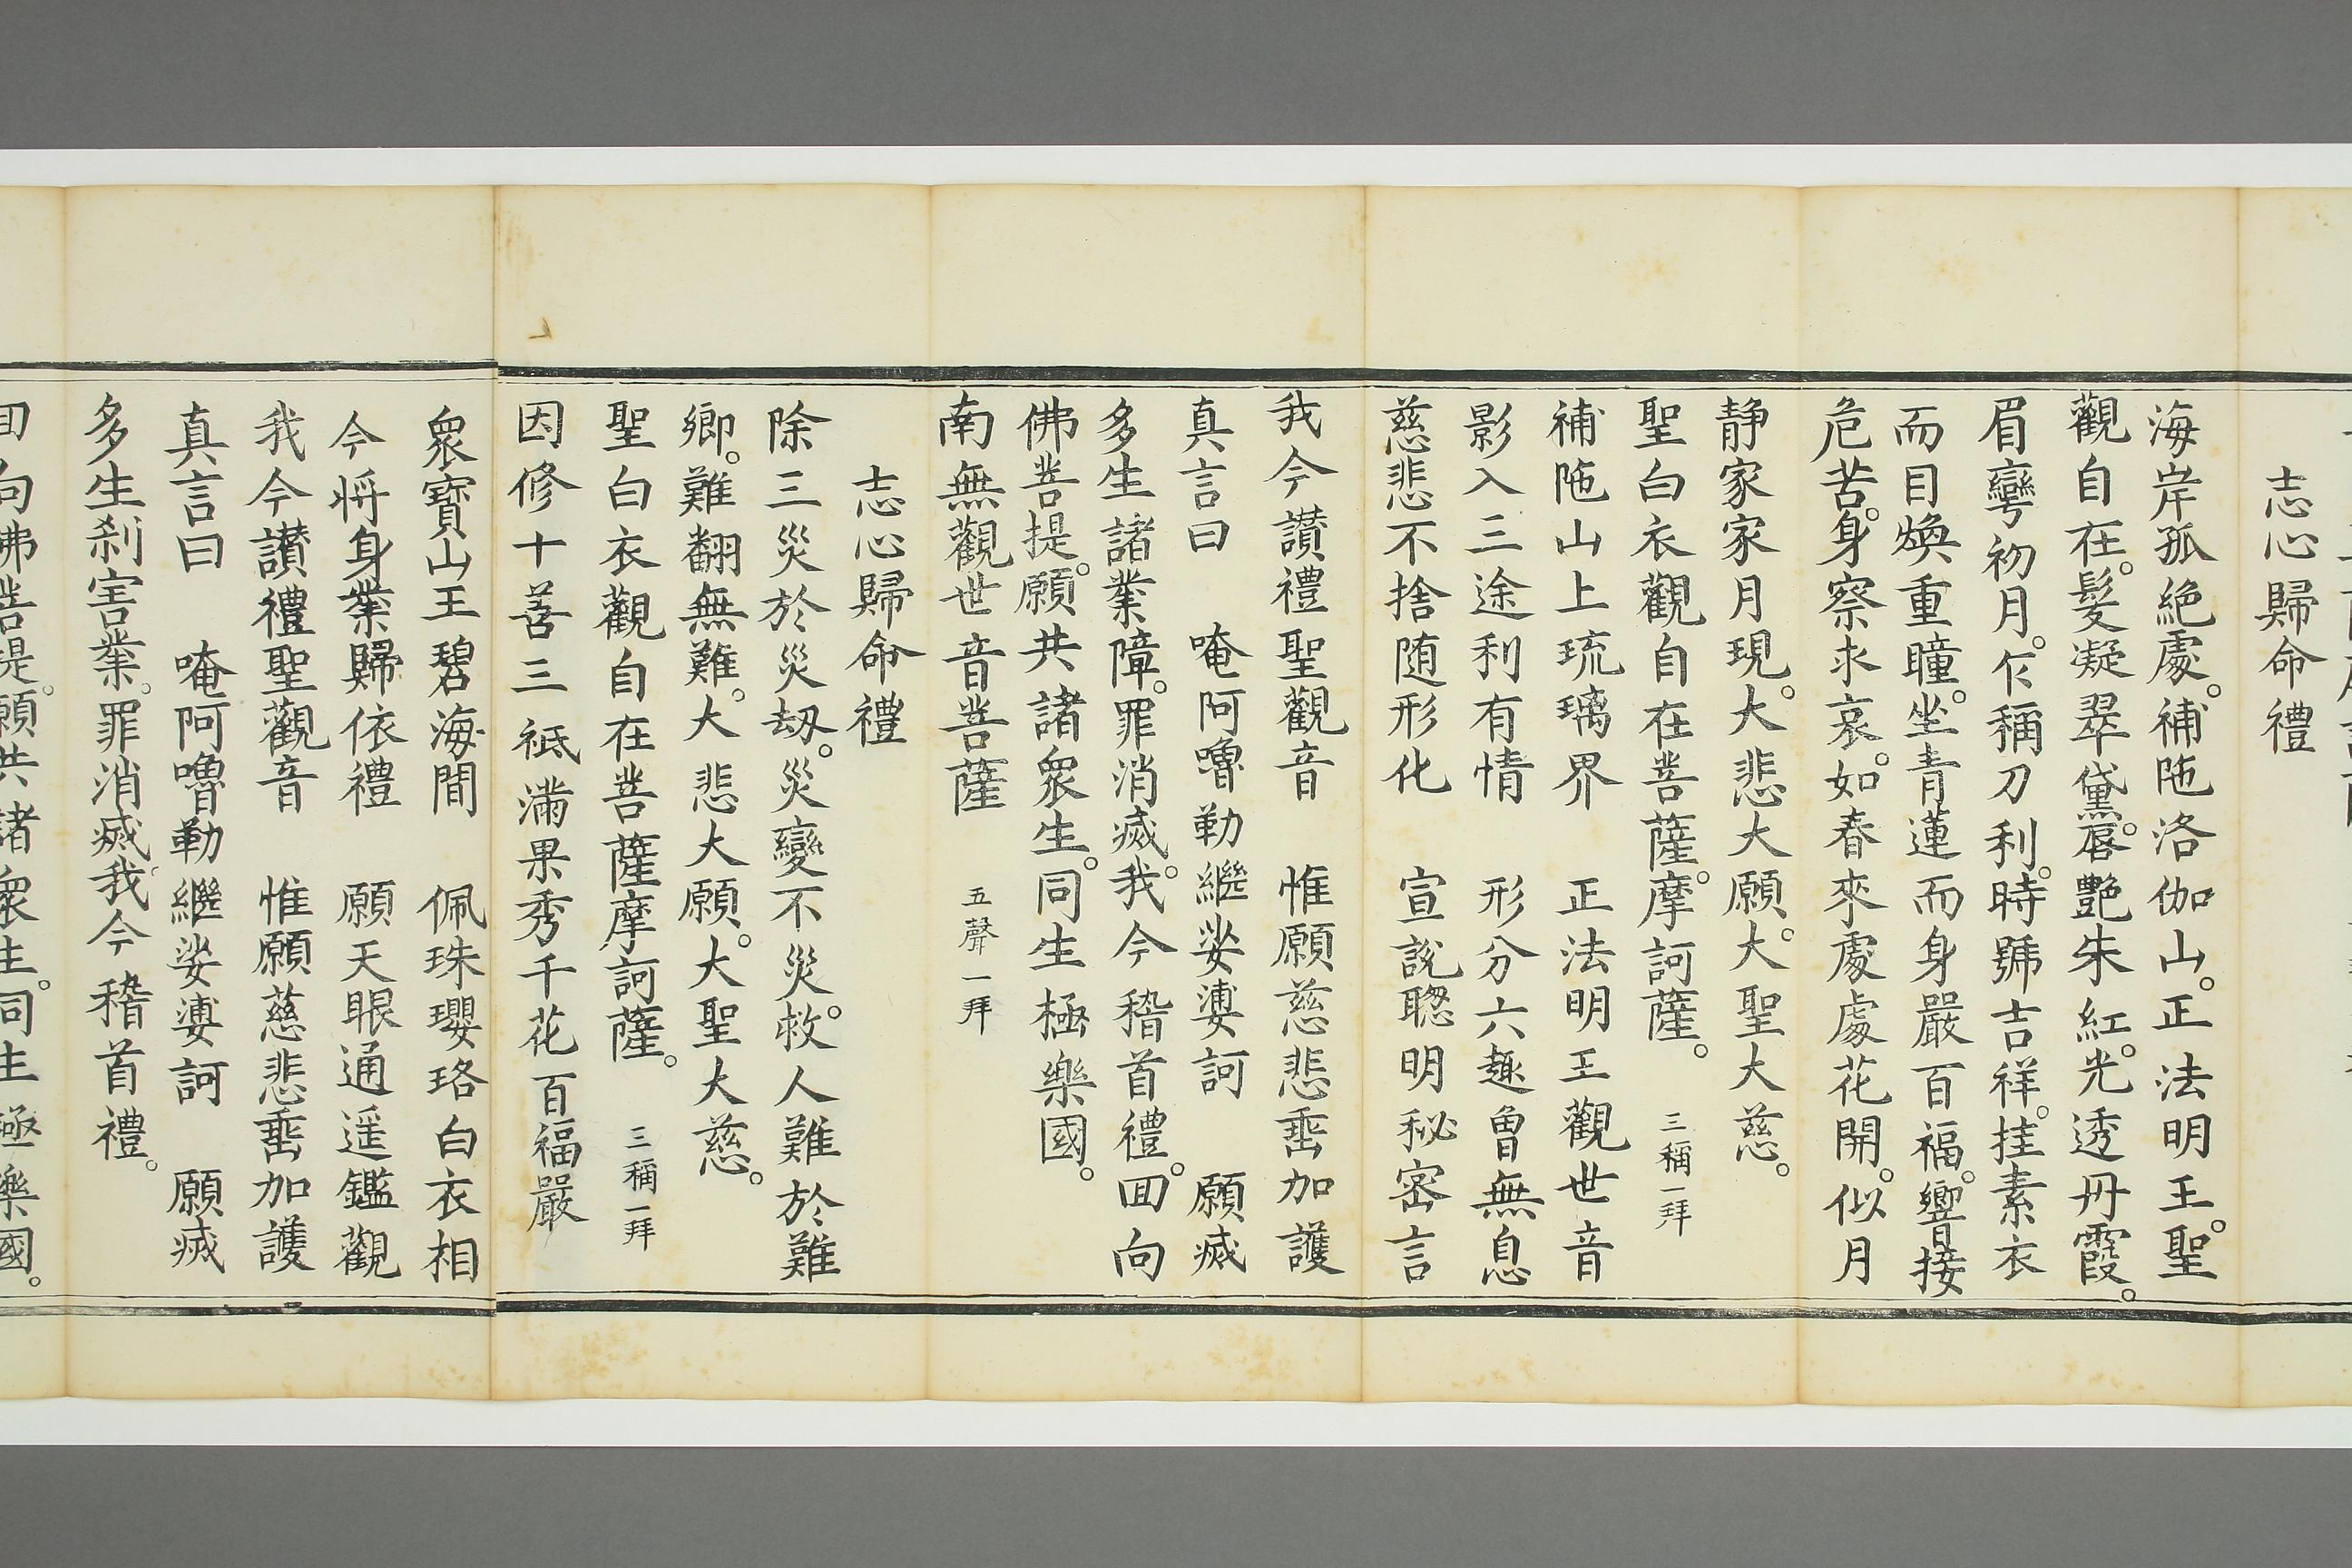 志心歸命禮
海岸孤絶處。補陁洛伽山。正法明王。聖
觀自在。髮凝翠黛。唇艶朱紅。光透丹霞。
眉彎初月。乍稱刀利。時號吉祥。挂素衣
而目煥重瞳。坐青蓮而身嚴百福。響接
危苦。身察求哀。如春來處處花開。似月
静家家月現。大悲大願。大聖大慈。
聖白衣觀自在菩薩。摩訶薩。 三稱一拜
補陁山上琉璃界 正法明王觀世音
影入三途利有情 形分六趣曾無息
慈悲不捨随形化 宣說聦明秘密言
我今讃禮聖觀音 惟願慈悲垂加護
真言曰 唵阿嚕勒繼娑婆訶 願滅
多生諸業障。罪消滅。我今稽首禮。回向
佛菩提。願共諸衆生。同生極樂國。
南無觀世音菩薩 五聲一拜
志心歸命禮
除三災於災劫。災變不災。救人難於難
鄉。難翻無難。大悲大願。大聖大慈。
聖白衣觀自在菩薩摩訶薩。 三稱一拜
因修十善三祇滿果秀千花百福嚴
衆寶山王碧海間 佩珠瓔珞白衣相
今將身業歸依禮 願天眼通遥鑑觀
我今讃禮聖觀音 惟願慈悲垂加護
真言曰 唵阿嚕勒繼娑婆訶 願滅
多生刹害業。罪消滅。我今稽首禮。
回向佛菩提。願共諸衆生。同生極樂國。